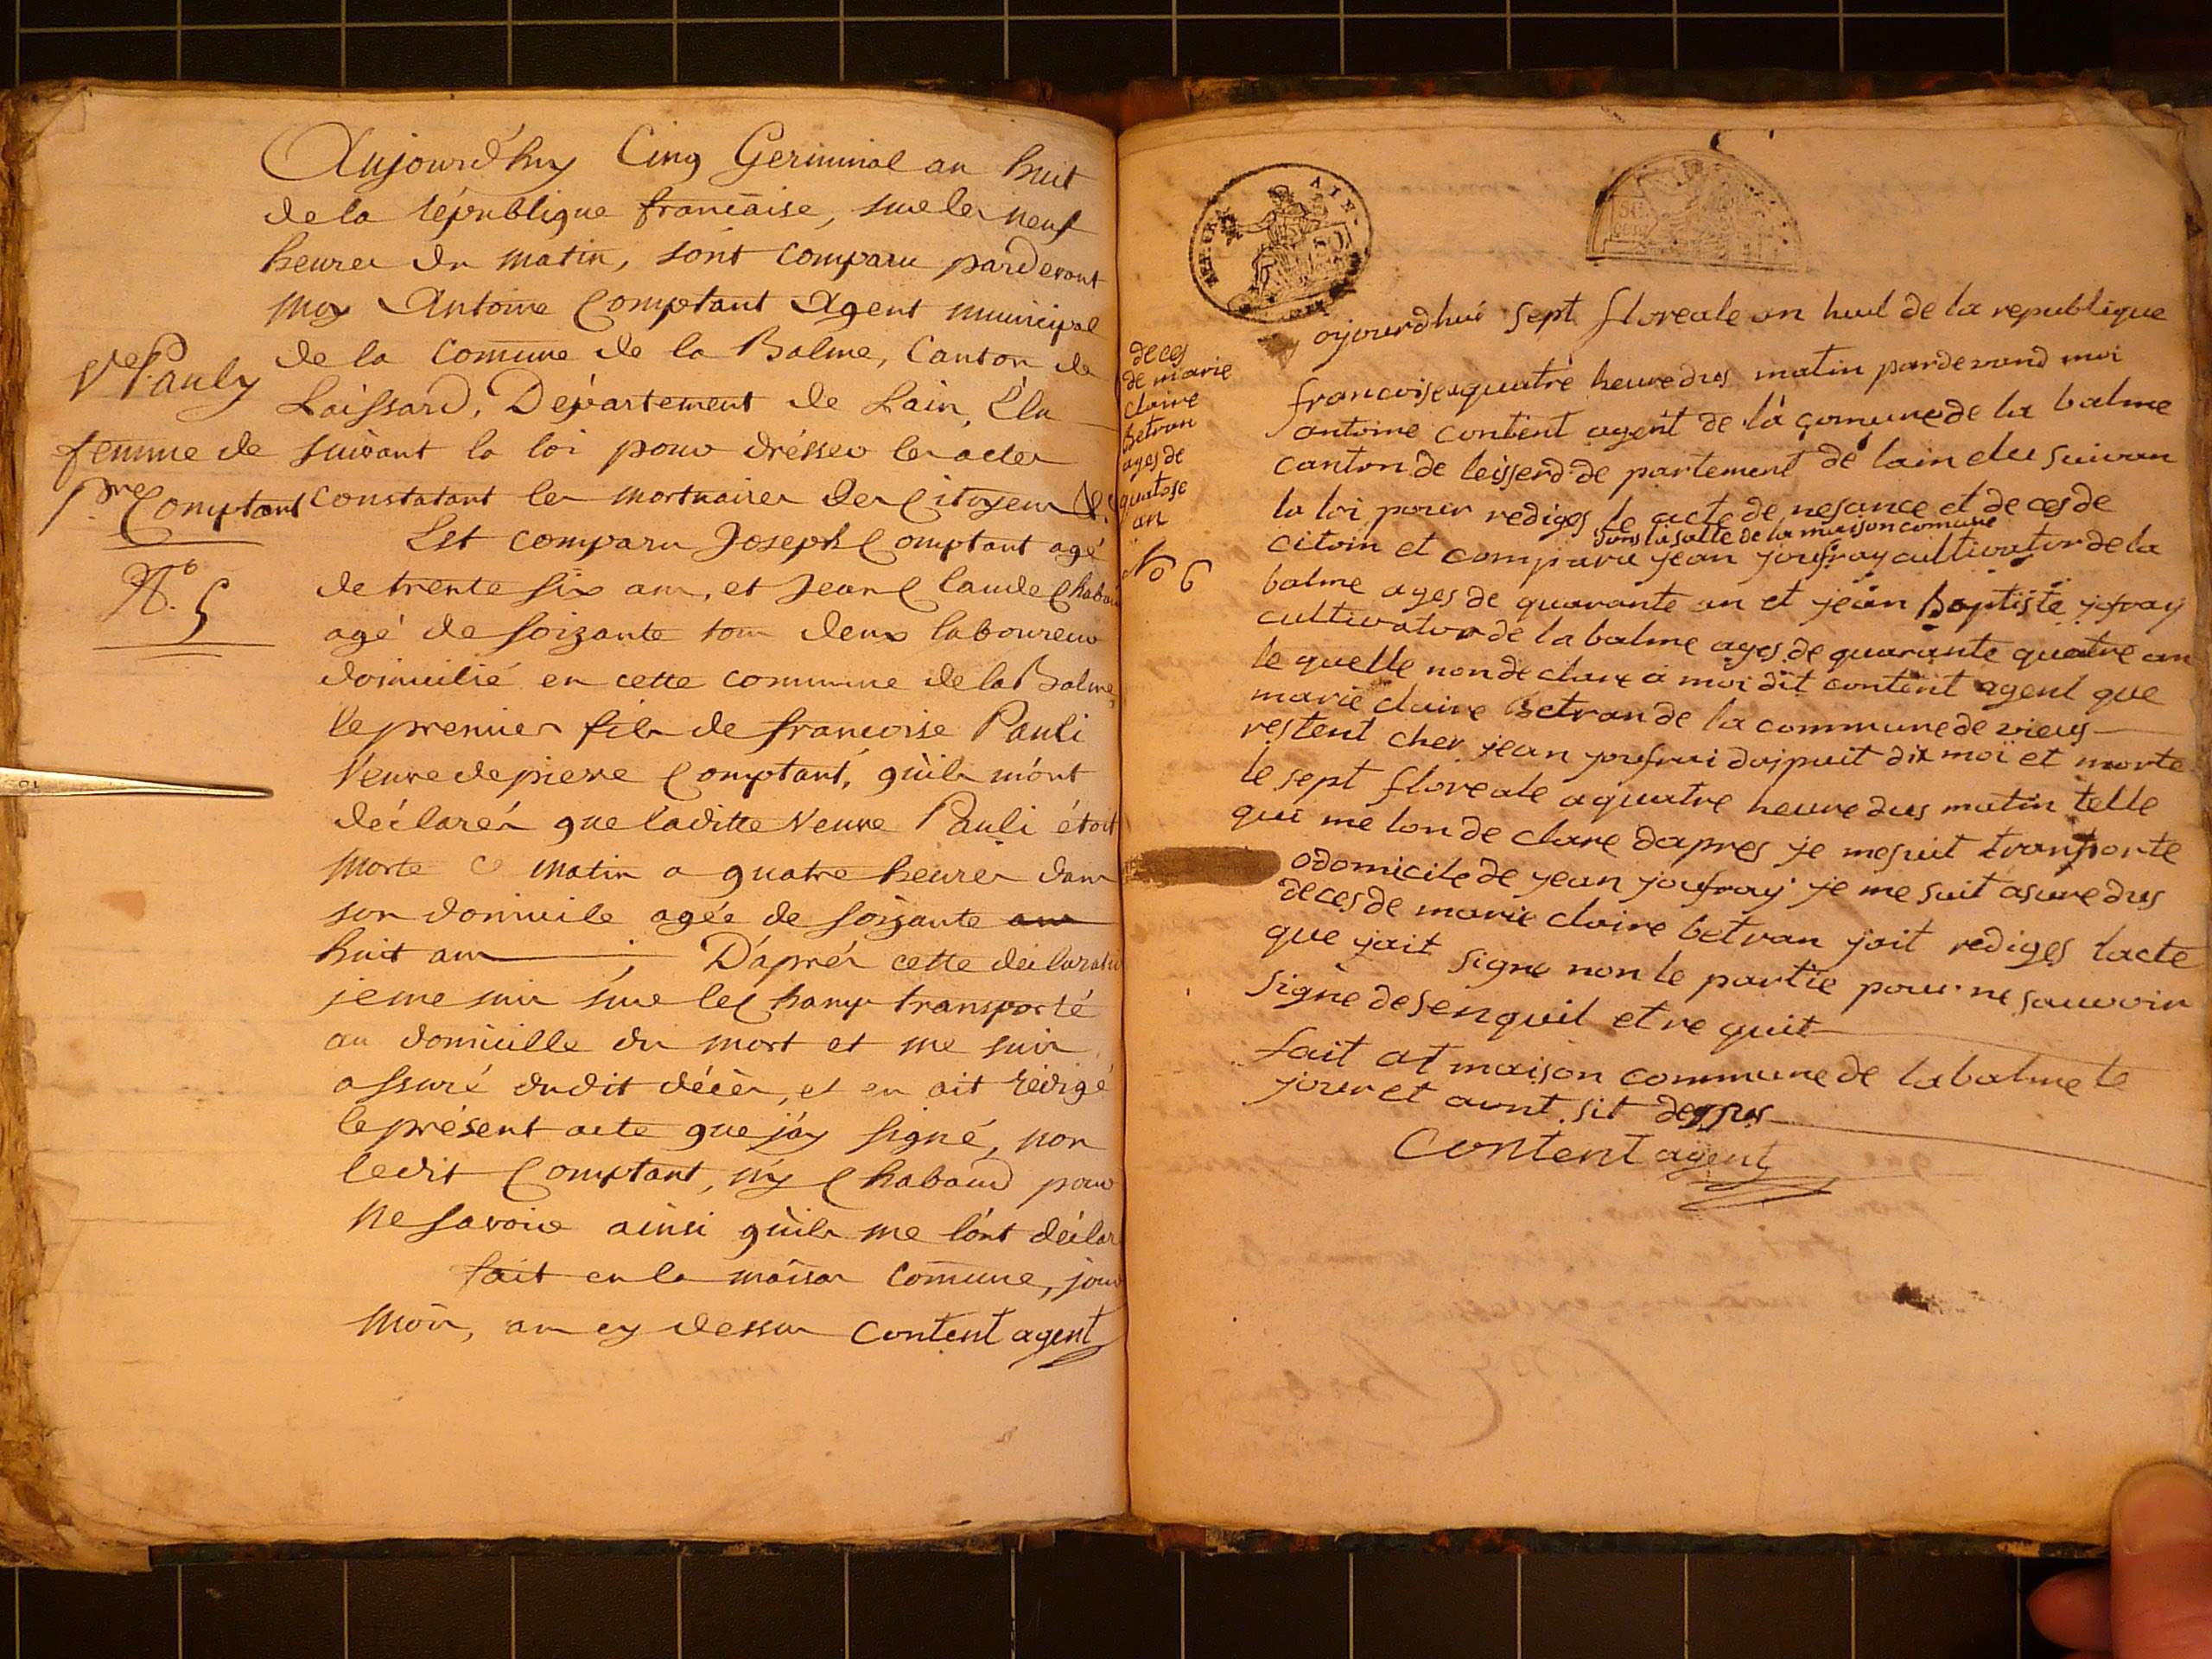 Aujourd'huy Cinq Germinal an huit
de la république francaise, sur les neuf
heures du matin, sont comparu pardevant
moy Antoine Comptant Agent municipal
de la Comune de la Balme, Canton de
Laissard, Département de Lain, Élu
suivant la loi pour drésser les actes
constatant les mortuaires des Citoyens
Est comparu Joseph Comptant agé
de trente six ans, et Jean Claude Chabou
agé de soizante tous deux laboureur
domicilié en cette commune de la Balme
le premier fils de francoise Pauli
Veuve de pierre Comptant, qu'ils m'ont
déclarés que laditte Veuve Pauli étoit
morte ce matin a quatre heures dans
son domicile agée de soizante ans
huit ans ; D'aprés cette déclaratio
je me suis sur les Champ transporté
au domicille du mort et me suis
assuré dudit décès, et en ait rédigé
le présent acte que j'ay signé, non
ledit Comptant, n'y Chaboud pour
ne savoir ainsi qu'ils me l'ont déclar
fait en la maison comune, jour
mois, an cy dessus Content agent
Ve. Pauly
femme de
Pre. Comptant
No. 5
AIN
deces
de marie
claire
betran
ages de
quatose
an
No 6
ojourdhui sept floreale an huit de la republique
francoise aquatre heure dus matin pardevand moi
antoine content agent de la comune de la balme
canton de leisserd departement de lain elu suivan
la loi pour rediges le acte de nesance et deces de
dans la salle de la maison comune
citoin et comparu jean joufray cultivator de la
balme ages de quarante an et jean baptiste jofray
cultivator de la balme ages de quarante quatre an
le quelle non declare a moi dit content agent que
marie claire betran de la commune de vieus
restent cher jean joufrai dujpuit dix moi et morte
le sept floreale aquatre heure dus matin telle
qui me lon declare dapres je mesuit transporte
odomicile de jean joufray je me suit asure dus
deces de marie claire betran jait rediges lacte
que jait signe non le partie pour ne sauvoir
signe de senquil et re quit
fait at maison commune de labalme le
jour et aunt sit desus
Content agent